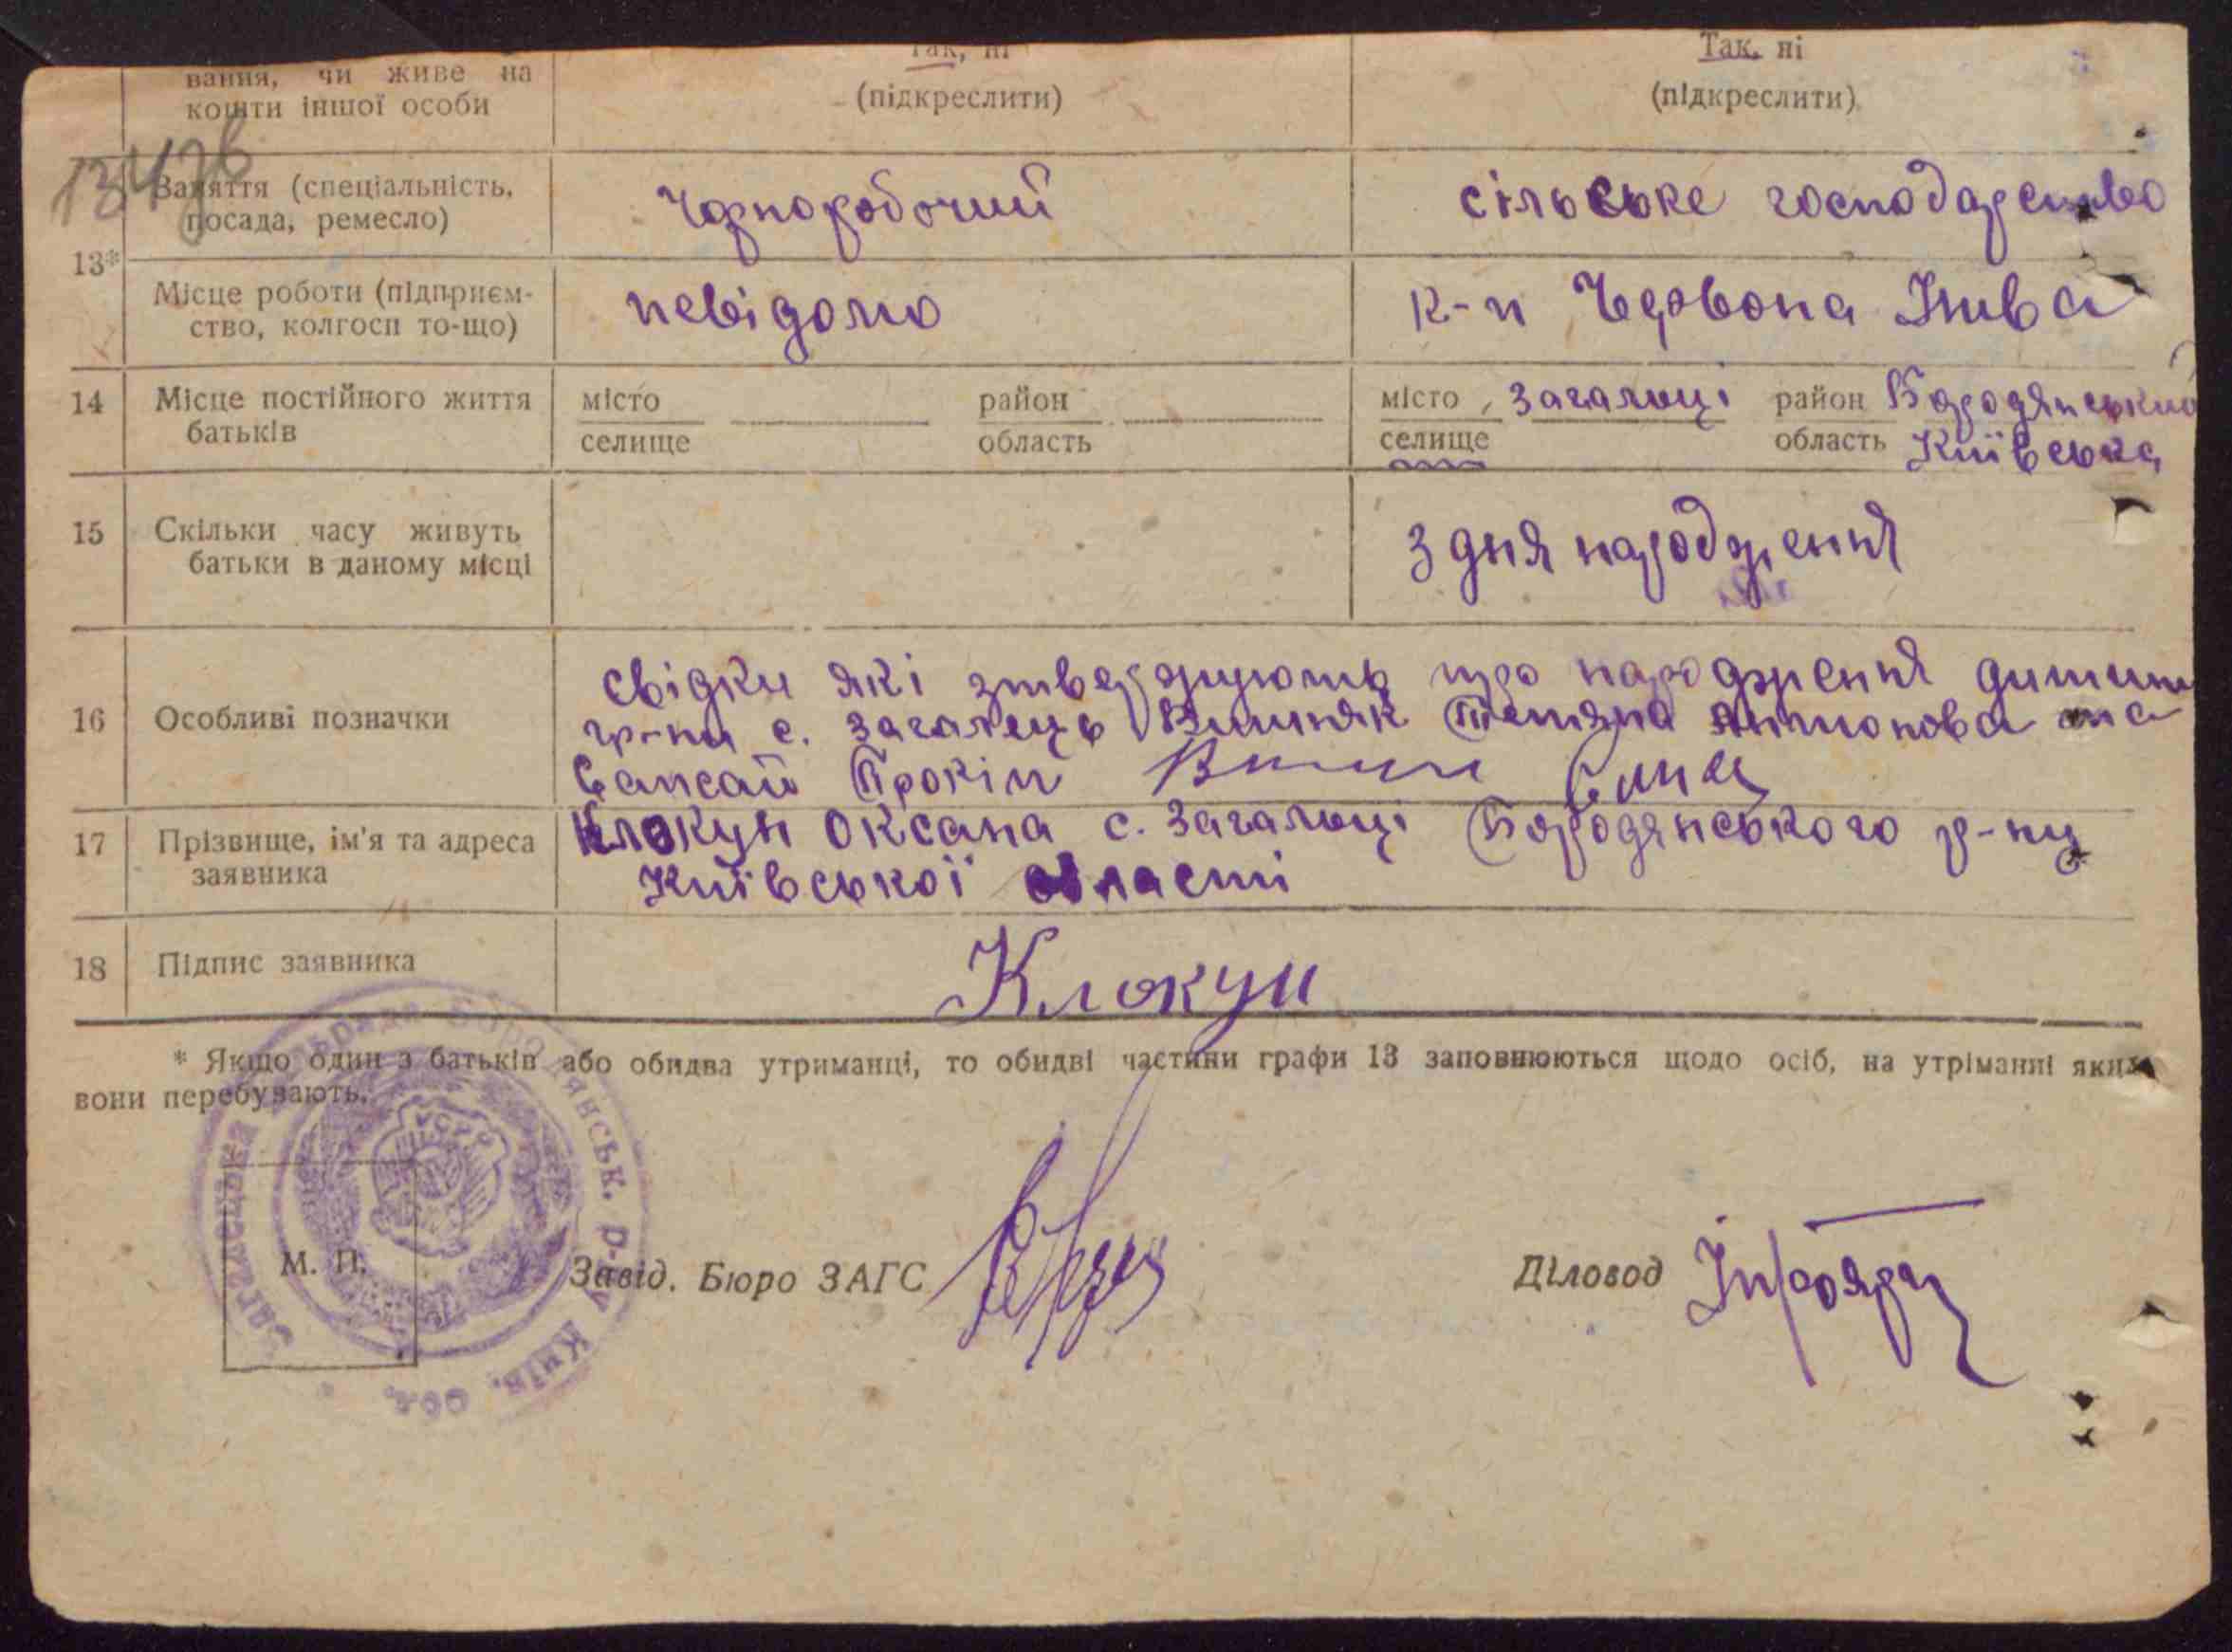 Так, ні
Так, ні
вання, чи живе на
кошти іншої особи
(підкреслити)
(підкреслити)
Заняття (спеціальність,
посада, ремесло)
Чорноробочий
сільське господарство
13*
Місце роботи (підприєм-
ство, колгосп то-що)
невідомо
к-п Червона Нива
14
Місце постійного життя
батьків
місто
район
селище
область
місто Загальці район Бородянський
селище область Київська
15
Скільки часу живуть
батьки в даному місці
З дня народження
16
Особливі позначки
свідки які зтверджують про народження дитини
гр-ни с. Загалець Вишняк Тетяна Антонова та
Сапсай Прокіп
17
Прізвище, ім'я та адреса
заявника
Клокун Оксана с. Загальці Бородянського р-ну
Київської області
18
Підпис заявника
Клокун
* Якщо один з батьків або обидва утриманці, то обидві частини графи 13 заповнюються щодо осіб, на утріманні яких
вони перебувають.
М. П.
Завід. Бюро ЗАГС
Діловод
Загалецька сільрада Бородянськ. р-ну Київ. обл.
УСРР